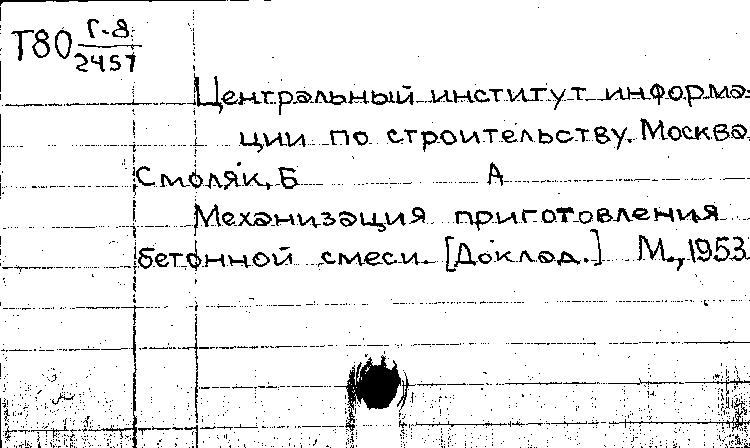 Т80 Г-8/2457
Центральный институт информа-
ции по строительству. Москва.
Смоляк, Б А
Механизация приготовления
бетонной смеси. [Доклад.] М., 1953.